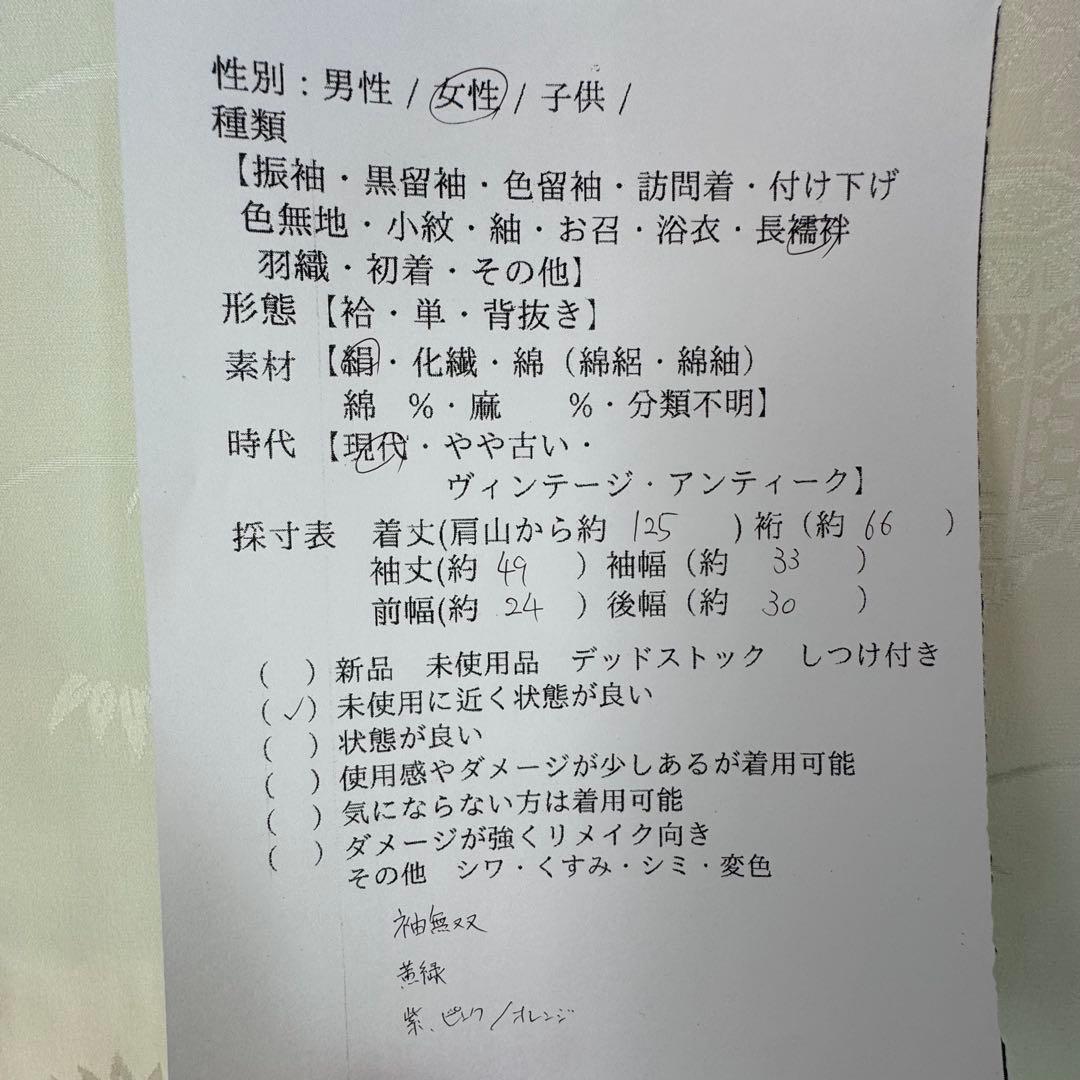 性別：男性 / 女性 / 子供 /
種類
【振袖・黒留袖・色留袖・訪問着・付け下げ
色無地・小紋・紬・お召・浴衣・長襦袢
羽織・初着・その他】
形態【袷・単・背抜き】
素材【絹・化繊・綿（綿絽・綿紬）
綿　％・麻　　％・分類不明】
時代【現代・やや古い・
ヴィンテージ・アンティーク】
採寸表　着丈(肩山から約 125 ) 裄（約 66 ）
袖丈(約 49 ）袖幅（約 33 ）
前幅(約 24 ）後幅（約 30 ）
(　) 新品　未使用品　デッドストック　しつけ付き
(✓) 未使用に近く状態が良い
(　) 状態が良い
(　) 使用感やダメージが少しあるが着用可能
(　) 気にならない方は着用可能
(　) ダメージが強くリメイク向き
その他　シワ・くすみ・シミ・変色
袖無双
黄緑
紫、ピンク/オレンジ